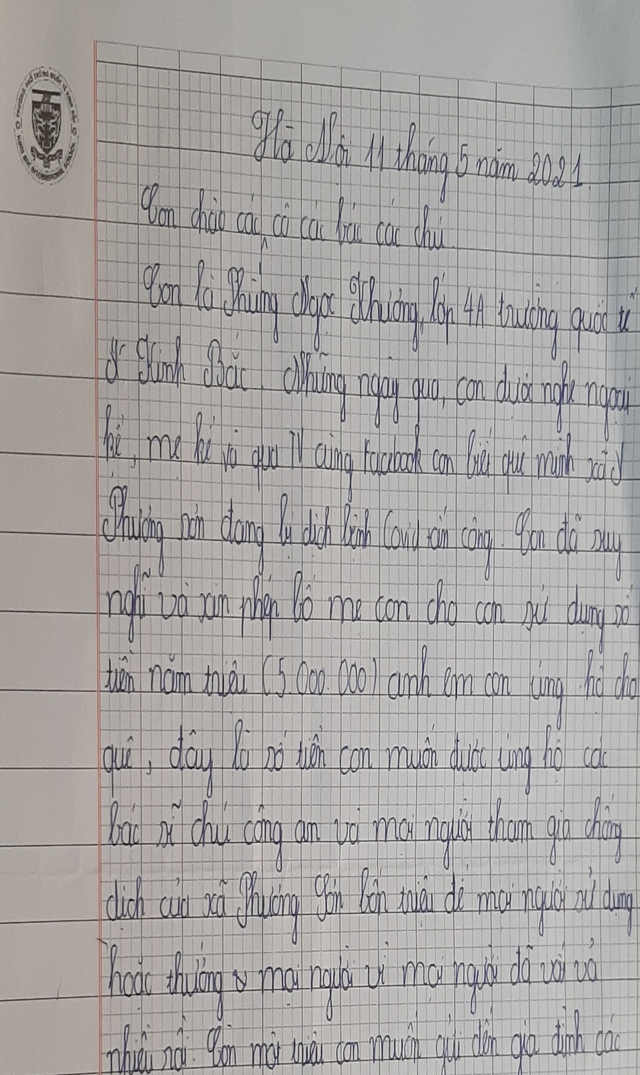 Hà Nội 11 tháng 5 năm 2021.
Con chào các cô các bác các chú
Con là Phùng Ngọc Khương, lớp 4A trường quốc tế
Kinh Bắc. Những ngày qua, con được nghe ngoại
kể, mẹ kể và qua TV cùng facebook con biết quê mình xã
Phương Sơn đang bị dịch bệnh Covid tấn công. Con đã suy
nghĩ và xin phép bố mẹ con cho con sử dụng số
tiền năm triệu (5 000.000) anh em con ủng hộ cho
quê, đây là số tiền con muốn được ủng hộ các
bác sĩ chú công an và mọi người tham gia chống
dịch của xã Phương Sơn bốn triệu để mọi người sử dụng
hoặc thưởng mọi người vì mọi người đã vất vả
nhiều rồi. Còn một triệu con muốn gửi đến gia đình các